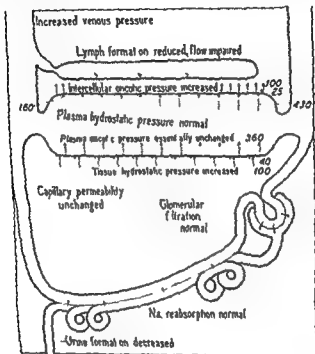 Increased venous pressure
Lymph format on reduced, flow impaired
Intercellular oncotic pressure increased
300
25
160
430
Plasma hydrostatic pressure normal
Plasma oncot c pressure essent ally unchanged 360
40
Tissue hydrostatic pressure increased 100
Capillary permeability
unchanged
Glomerular
filtration
normal
Na. reabsorption normal
Urine format on decreased